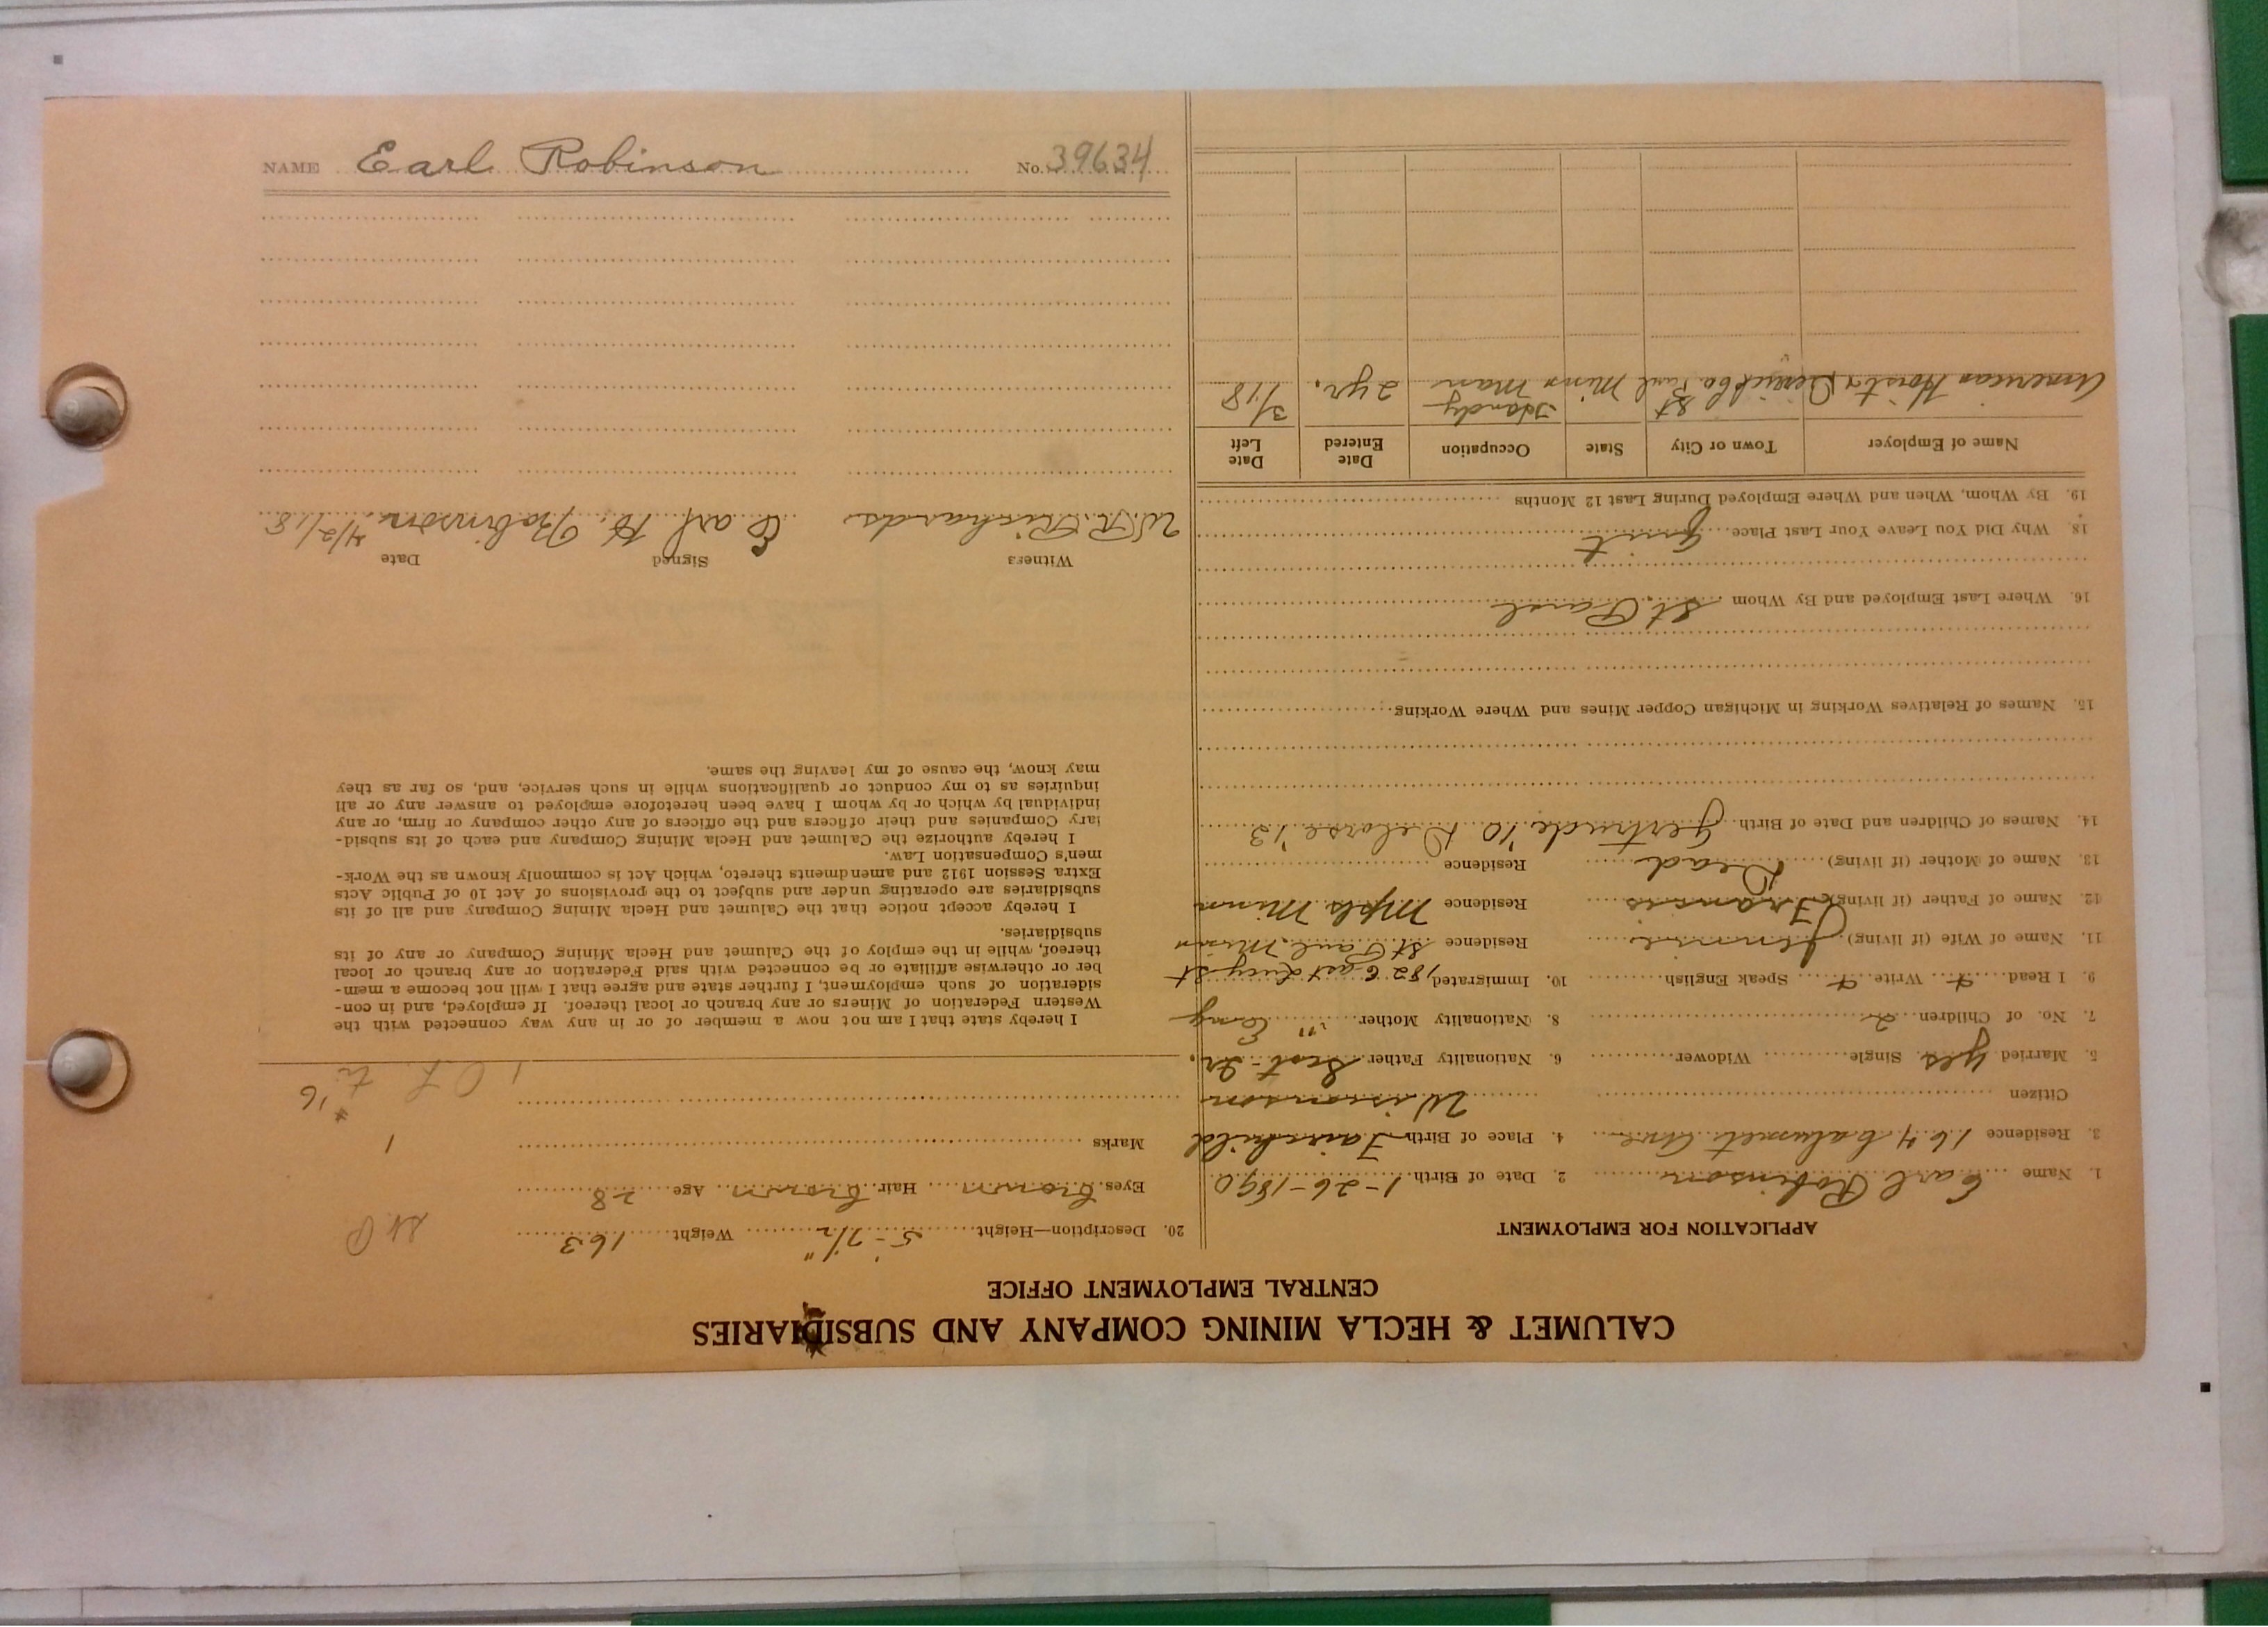 NAME Earl Robinson No. 39634
CALUMET & HECLA MINING COMPANY AND SUBSIDIARIES
CENTRAL EMPLOYMENT OFFICE
APPLICATION FOR EMPLOYMENT
1. Name Earl Robinson 2. Date of Birth 1-26-1890
3. Residence 164 Calumet Ave 4. Place of Birth Fairchild
Citizen Wisconson
5. Married yes Single Widower 6. Nationality Father Scot-Ir.
7. No. of Children 2 8. Nationality Mother " Eng
9. I Read Write Speak English 10. Immigrated 182 East Lucy St
11. Name of Wife (if living) Jennie Residence St Paul, Minn
12. Name of Father (if living) Francis Residence Mpls Minn
13. Name of Mother (if living) Dead Residence
14. Names of Children and Date of Birth Gertrude '10 Delorse '13
15. Names of Relatives Working in Michigan Copper Mines and Where Working
16. Where Last Employed and By Whom St. Paul
18. Why Did You Leave Your Last Place Quit
19. By Whom, When and Where Employed During Last 12 Months
Name of Employer Town or City State Occupation Date Entered Date Left
American Hoist & Derrick Co St Paul Minn Handy Man 2 yr. 3/18
20. Description—Height 5'-7 1/2" Weight 163
St. P
Eyes brown Hair brown Age 28
Marks
1
I hereby state that I am not now a member of or in any way connected with the
Western Federation of Miners or any branch or local thereof. If employed, and in con-
sideration of such employment, I further state and agree that I will not become a mem-
ber or otherwise affiliate or be connected with said Federation or any branch or local
thereof, while in the employ of the Calumet and Hecla Mining Company or any of its
subsidiaries.
I hereby accept notice that the Calumet and Hecla Mining Company and all of its
subsidiaries are operating under and subject to the provisions of Act 10 of Public Acts
Extra Session 1912 and amendments thereto, which Act is commonly known as the Work-
men's Compensation Law.
I hereby authorize the Calumet and Hecla Mining Company and each of its subsid-
iary Companies and their officers and the officers of any other company or firm, or any
individual by which or by whom I have been heretofore employed to answer any or all
inquiries as to my conduct or qualifications while in such service, and, so far as they
may know, the cause of my leaving the same.
Witness Signed Date
W.R. Richards Earl H. Robinson 4/2/18